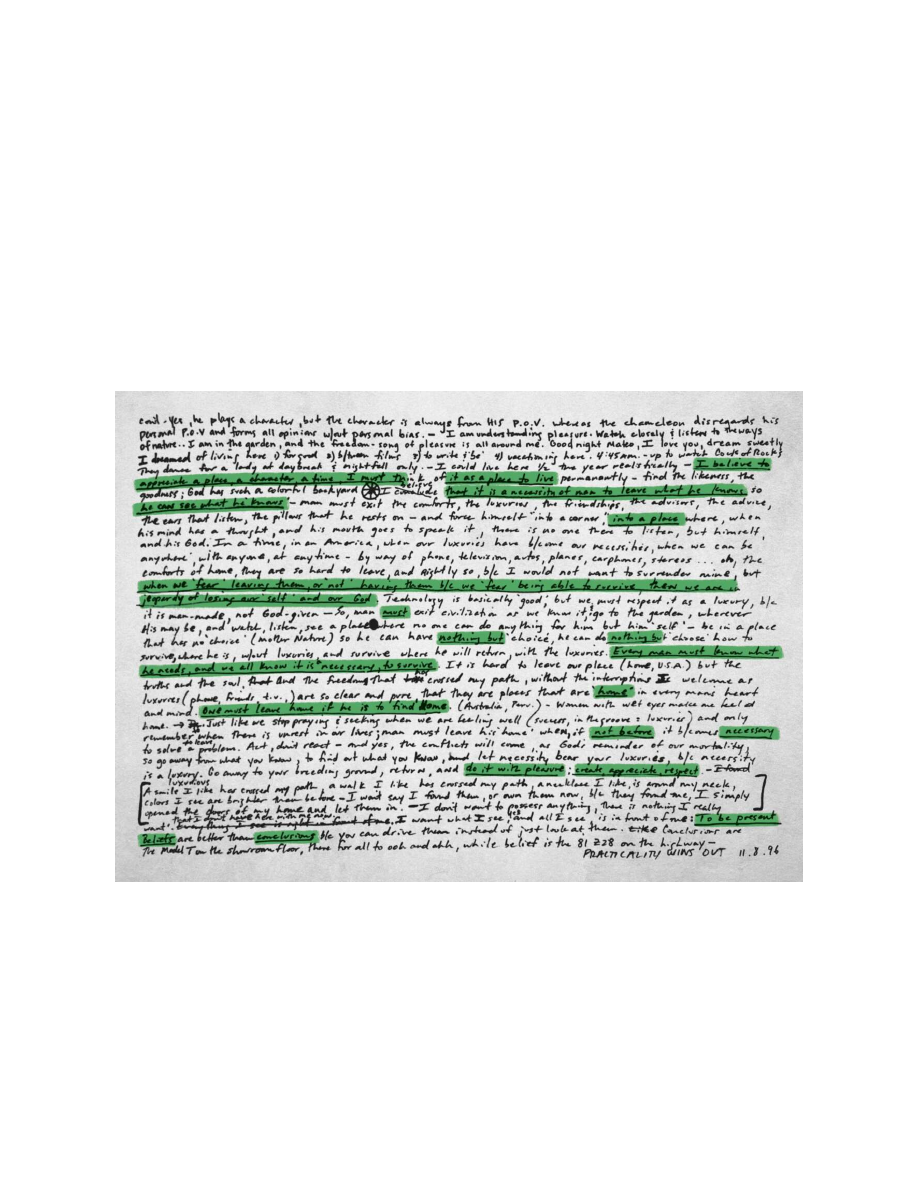 con't - Yes, he plays a character, but the character is always from HIS P.O.V. whereas the chameleon disregards his
personal P.O.V and forms all opinions w/out personal bias. — I am understanding pleasure. Watch closely & listen to the ways
of nature.. I am in the garden, and the freedom-song of pleasure is all around me. Good night Mako, I love you, dream sweetly
I dreamed of living here 1) for good 2) b/tween films 3) to write & 'be' 4) vacationing here. 4:45am. - up to watch Cocks of Rock &
They dance for a lady at daybreak & nightfall only. - I could live here 1/2 the year realistically — I believe to
appreciate a place, a character, a time, I must think of it as a place to live permanently - find the likeness, the
goodness; God has such a colorful backyard I conclude believe that it is a necessity of man to leave what he knows so
he can see what he knows - man must exit the comforts, the luxuries, the friendships, the advisors, the advice,
the ears that listen, the pillows that he rests on - and force himself 'into a corner,' into a place where, when
his mind has a thought, and his mouth goes to speak it, there is no one there to listen, but himself,
and his God. In a time, in an America, when our luxuries have b/come our necessities, when we can be
'anywhere', with anyone, at anytime - by way of phone, television, autos, planes, carphones, stereos ... oh, the
comforts of home, they are so hard to leave, and rightly so, b/c I would not want to surrender mine, but
when we 'fear' leaving them, or not 'having' them b/c we 'fear' being able to survive, then we are in
jeopardy of losing our 'self' and our God. Technology is basically 'good,' but we must respect it as a luxury, b/c
it is man-made, not God-given — So, man must exit civilization as we know it; go to the garden, wherever
His may be, and watch, listen, see a place where no one can do anything for him but him 'self' - be in a place
that has no 'choice' (mother Nature) so he can have nothing but 'choice', he can do nothing but 'choose' how to
survive, where he is, w/out luxuries, and survive where he will return, with the luxuries. Every man must know what
he needs, and we all know it is necessary, to survive. It is hard to leave our place (home, U.S.A.) but the
truths and the soul, that and the freedom that crossed my path, without the interruptions I welcome as
luxuries (phone, friends, t.v.,) are so clear and pure, that they are places that are 'home' in every mans heart
and mind. One must leave home if he is to find Home. (Australia, Peru.) - Women with wet eyes make me feel at
home. → Just like we stop praying & seeking when we are feeling well (success, in the groove = luxuries) and only
remember when there is unrest in our lives; man must leave his 'home' when, if not before it b/comes necessary
to solve to leave a problem. Act, don't react - and yes, the conflicts will come, as God's reminder of our mortality,
so go away from what you know, to find out what you know, and let necessity bear your luxuries, b/c necessity
is a luxury. Go away to your breeding ground, return, and do it with pleasure; create, appreciate, respect. - I found
luxurious
A smile I like has crossed my path, a walk I like has crossed my path, a necklace I like, is around my neck,
colors I see are brighter than before - I wont say I found them, or own them now, b/c they found me, I simply
opened the doors of my home and let them in. - I don't want to possess anything, there is nothing I really
want that I don't have here with me now. Everything I see is right in front of me, I want what I see, and all I see, is in front of me: To be present
Beliefs are better than conclusions b/c you can drive them instead of just look at them. Like Conclusions are
The Model T on the showroom floor, there for all to ooh and ahh, while belief is the 81 Z28 on the highway —
PRACTICALITY WINS OUT 11.8.96